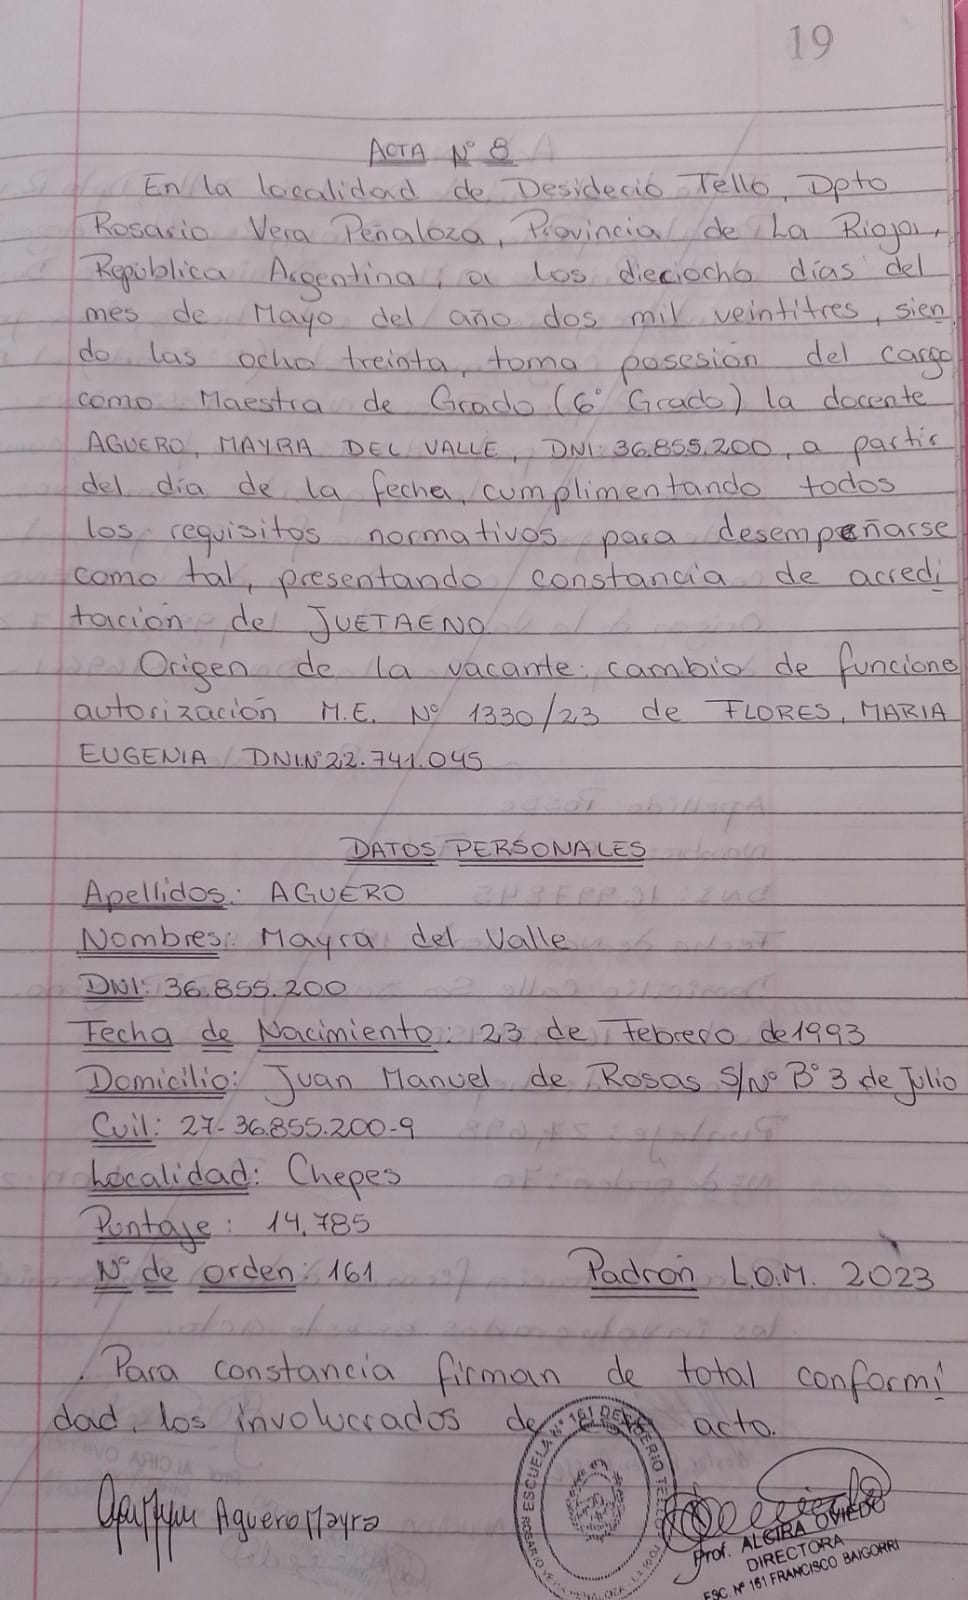 19
ACTA N° 8
En la localidad de Desiderio Tello, Dpto
Rosario Vera Peñaloza, Provincia de La Rioja,
República Argentina, a los dieciocho días del
mes de Mayo del año dos mil veintitres, sien
do las ocho treinta, toma posesión del cargo
como Maestra de Grado (6° Grado) la docente
AGUERO, MAYRA DEL VALLE, DNI: 36.855.200, a partir
del día de la fecha, cumplimentando todos
los requisitos normativos para desempeñarse
como tal, presentando constancia de acredi
tación de JUETAENO.
Origen de la vacante: cambio de funcione
autorización M.E. N° 1330/23 de FLORES, MARIA
EUGENIA DNI N° 22.741.045
DATOS PERSONALES
Apellidos: AGUERO
Nombres: Mayra del Valle
DNI: 36.855.200
Fecha de Nacimiento: 23 de Febrero de 1993
Domicilio: Juan Manuel de Rosas S/N° B° 3 de Julio
Cuil: 27-36.855.200-9
Localidad: Chepes
Puntaje: 14,785
N° de orden: 161 Padrón L.O.M. 2023
Para constancia firman de total conformi
dad, los involucrados de acto.
Aguero Mayra
ESCUELA N° 161 DESIDERIO TELLO
ROSARIO VERA PEÑALOZA - LA RIOJA
Prof. ALCIRA OVIEDO
DIRECTORA
ESC. N° 161 FRANCISCO BAIGORRI